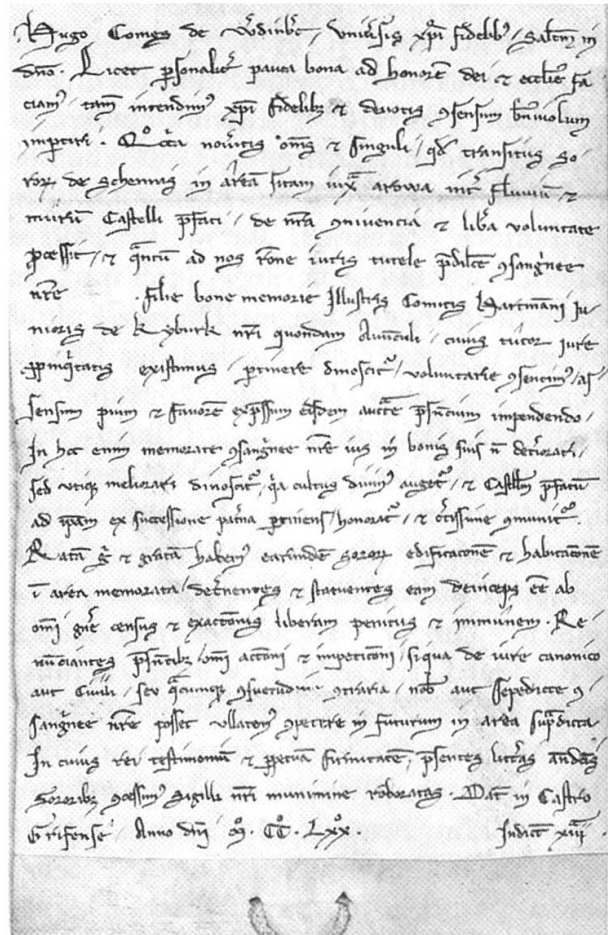 Hugo Comes de W̄dinb̄c, vniũsis xp̄i fidelibꝰ, Sal̄tm in
dn̄o. Licet ꝑsonalit̄ pauca bona ad honorē dei et eccl̄ie fa
ciamꝰ, tam̄ intendimꝰ xp̄i fidelibꝫ et deuotis ꝯsensum bn̄iuolum
imꝑtiri. Qͦcc̄a noũitis om̄s et singuli, qd̄ transitus So
roꝝ de Schennis in aream sitam iuxͣ int̄ fluuiū et
murū Castelli p̄fati, de nr̄a ꝯniuencia et lib̄a voluntate
ꝓcessit, et qͣntū ad nos rōne iuris tutele p̄dil̄ce ꝯsang̓nee
nr̄e . filie bone memorie Illustris Comitis Hartmāni Iu
nioris de Kyburk nr̄i quondam Auūculi, cuius tutor iure
ꝓpinq̓tatis existimus, ꝑtinere dinoscit᷑, voluntarie ꝯsentimꝰ, as
sensum pium et fauorē exp̄ssum eisdem auct̄te p̄sn̄cium inpendendo,
In hoc enim memorate ꝯsang̓nee nr̄e ius in bonis suis n̄ det̄iorari,
sed vtiqꝫ meliorari dinoscit᷑, q̓a cultus diuinꝰ auget᷑, et Castl̄lm p̄fatum
ad ip̄am ex successione pat̓na ꝑtinens, honorat᷑, et c̄tissime ꝯmunit᷑.
Ratā g̓ et gratā habemꝰ earundē Soroꝝ edificacōnē et habitacōnē
ī area memorata, dec̄nentes et statuentes eam deinceps eē ab
om̄i gn̄e census et exacc̄onis liberam penitus et immunem. Re
nūciantes p̄sn̄tibꝫ om̄i accōni et inpeticōni, si qua de iure canonico
aut Ciuili, seu qͣcumqꝫ ꝯsuetudine ꝯtraria, nob̄ aut Sepedicte ꝯ
sang̓nee nr̄e posset vllaten̄ꝰ ꝯpetere in futurum in area sup̄dicta
In cuius rei testimoniū et ꝑpetuā firmitatē, p̄sentes litt̄as eisdem
Sororibꝫ ꝯcessimꝰ Sigilli nr̄i munimine roboratas. Dat̄ in Castro
Grifense, Anno dn̄i .ꝏ. CCͦ. LXXͦ. Indicc̄ xiiiͣ.